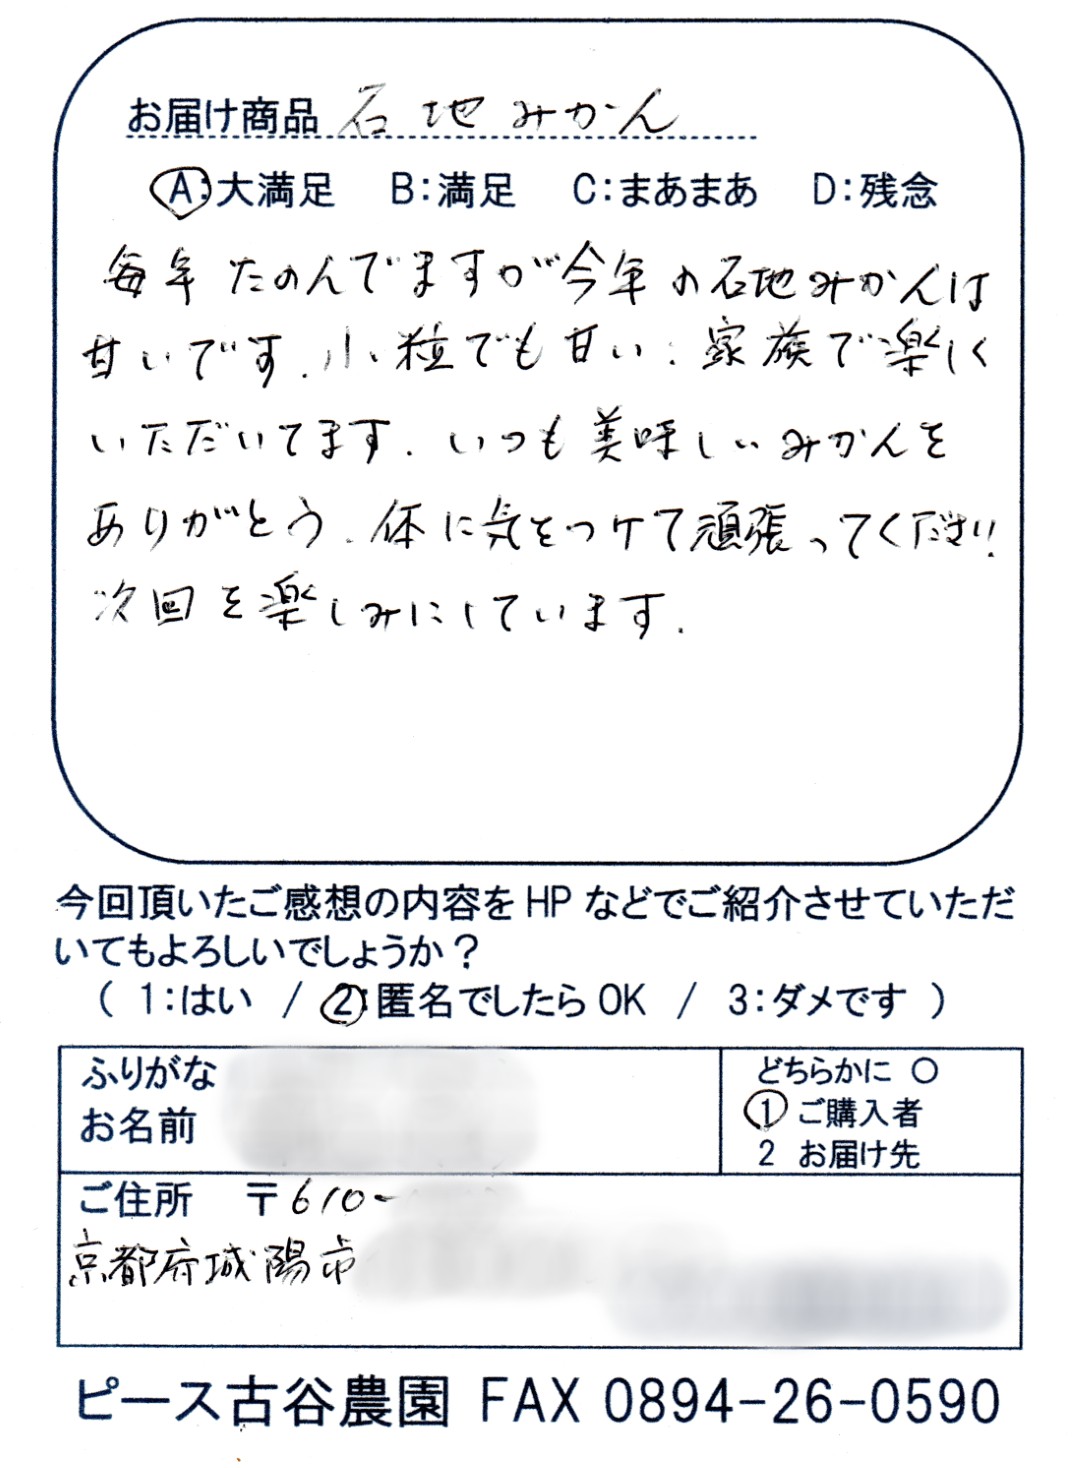 お届け商品 石地みかん
A:大満足 B:満足 C:まあまあ D:残念
毎年たのんでますが今年の石地みかんは
甘いです.小粒でも甘い.家族で楽しく
いただいてます.いつも美味しいみかんを
ありがとう.体に気をつけて頑張ってください.
次回を楽しみにしています.
今回頂いたご感想の内容を HP などでご紹介させていただ
いてもよろしいでしょうか?
( 1:はい / 2:匿名でしたら OK / 3:ダメです )
ふりがな
お名前
どちらかに ○
1 ご購入者
2 お届け先
ご住所 〒610-
京都府城陽市
ピース古谷農園 FAX 0894-26-0590